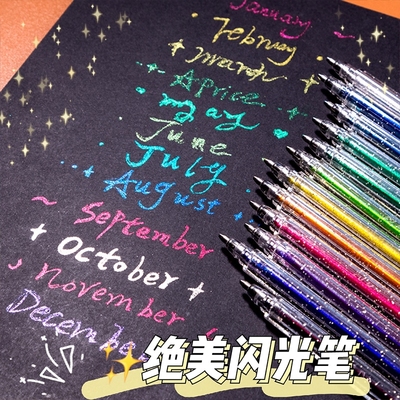 January
February
march
Aprice
myay
June
July
August
September
October
november
December
绝美闪光笔